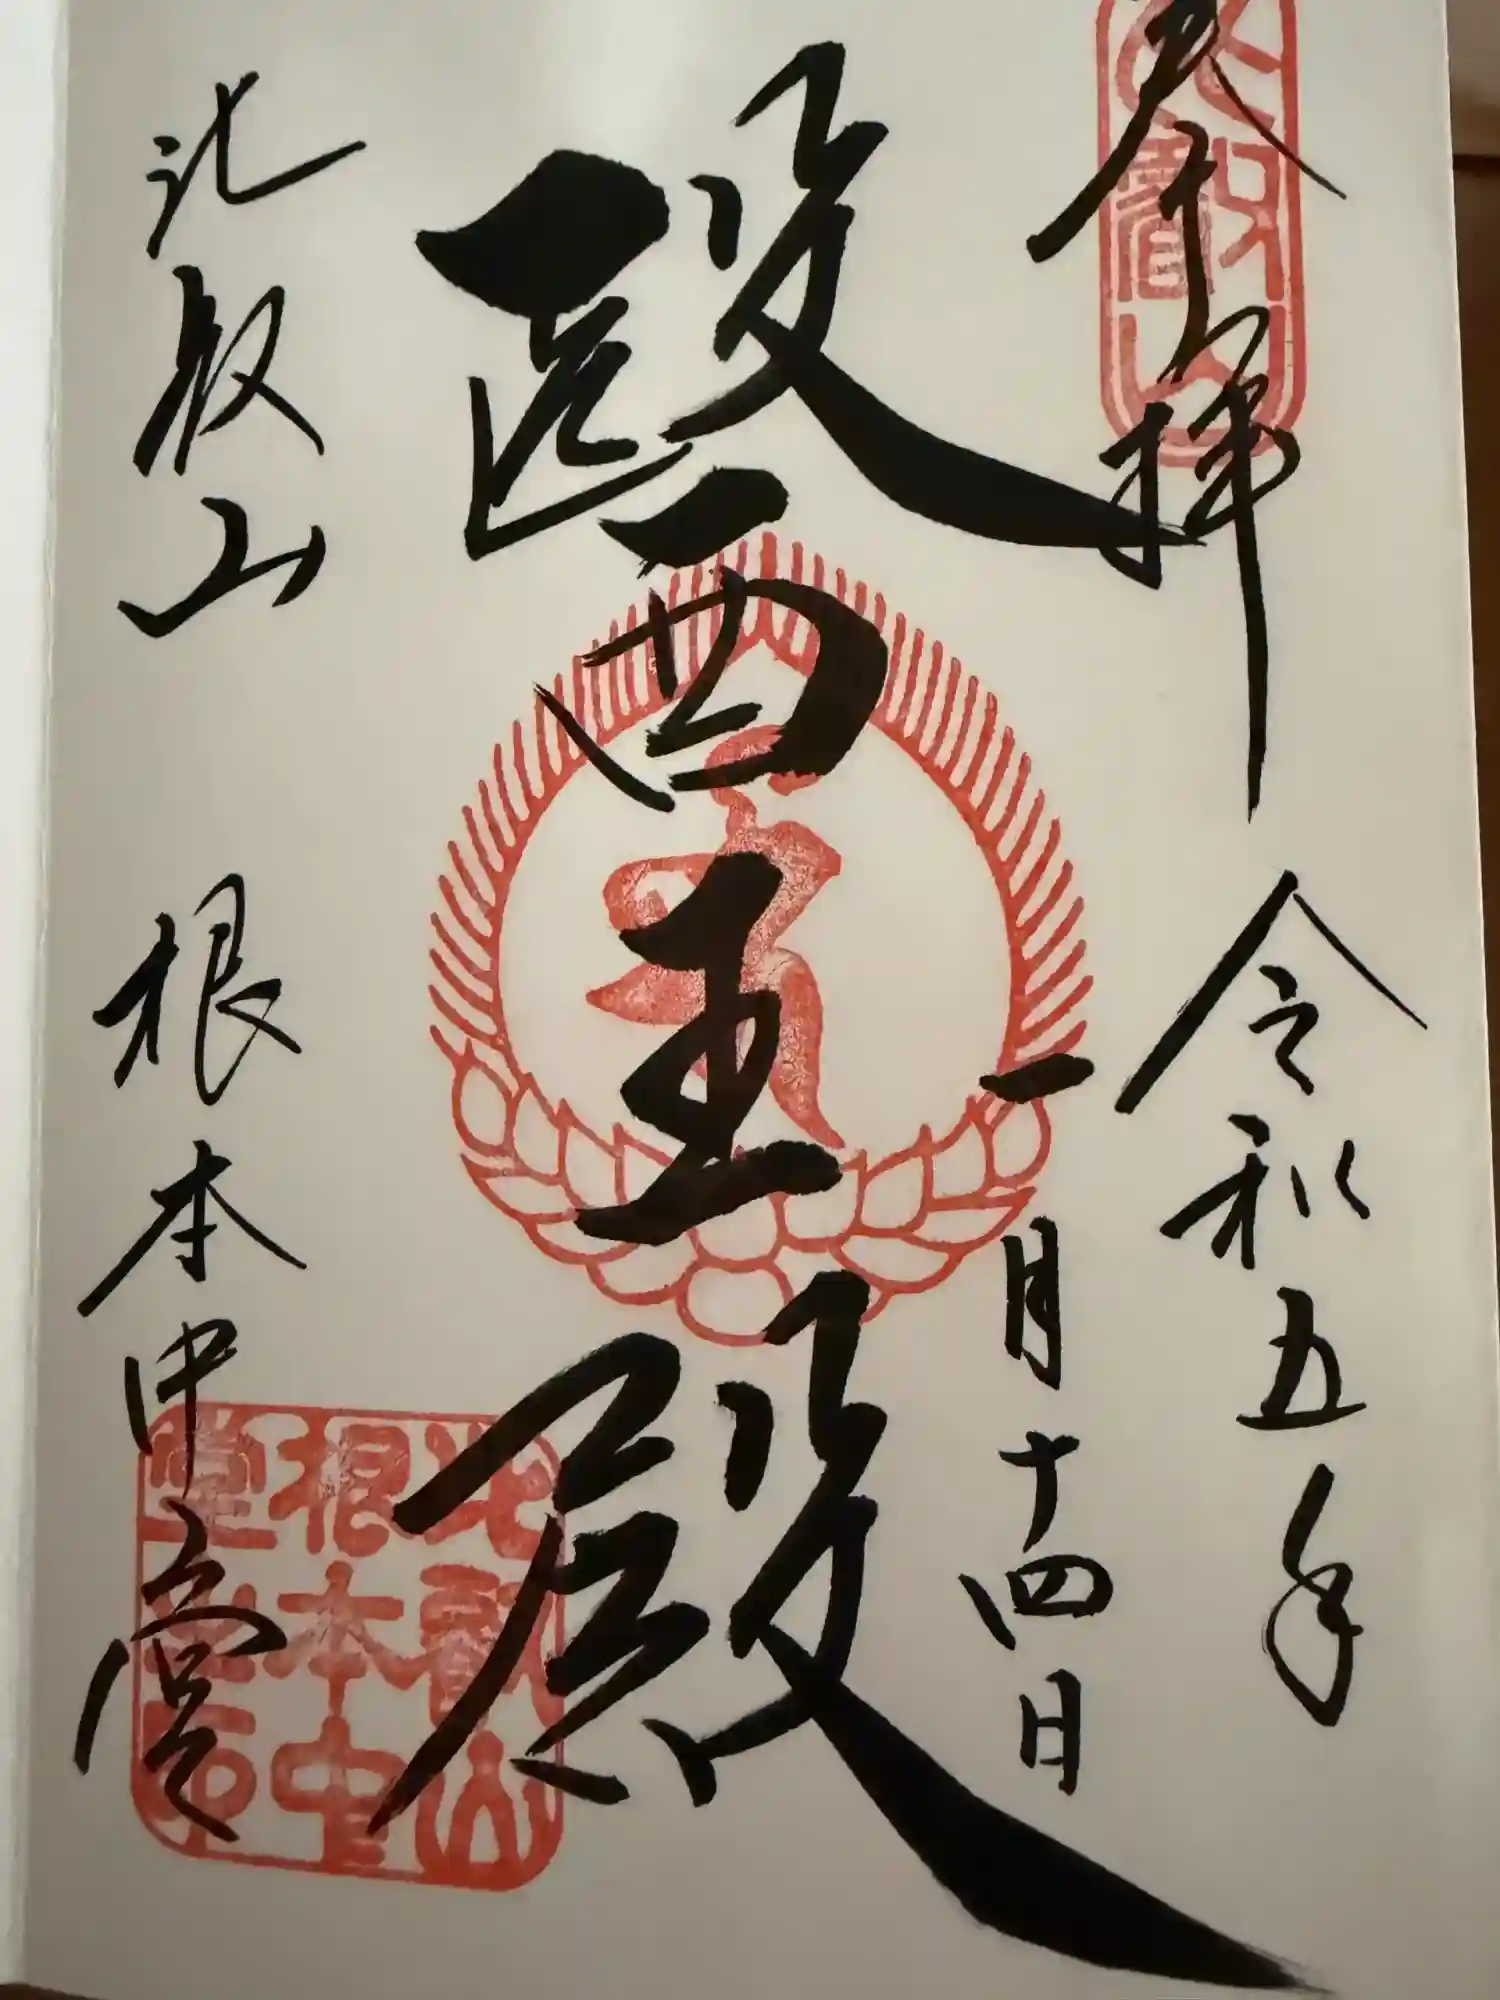 奉拝
令和五年
一月十四日
醫王殿
比叡山 根本中堂
比叡山
比叡山
根本中
堂之印